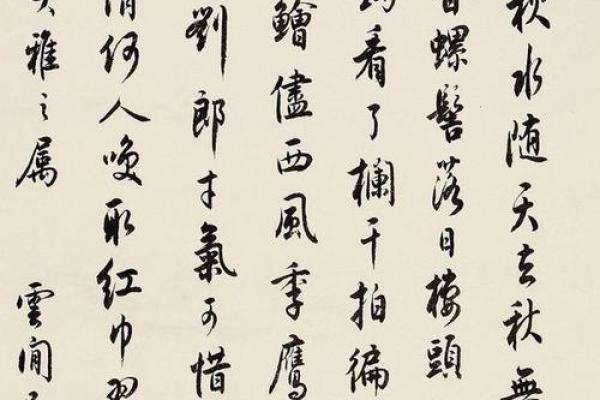 秋水随天去秋無
螺髻落日樓頭
看了欄干拍徧
鱠儘西風季鷹
劉郎才氣可惜
倩何人喚取紅巾翠
雅之属 雲間